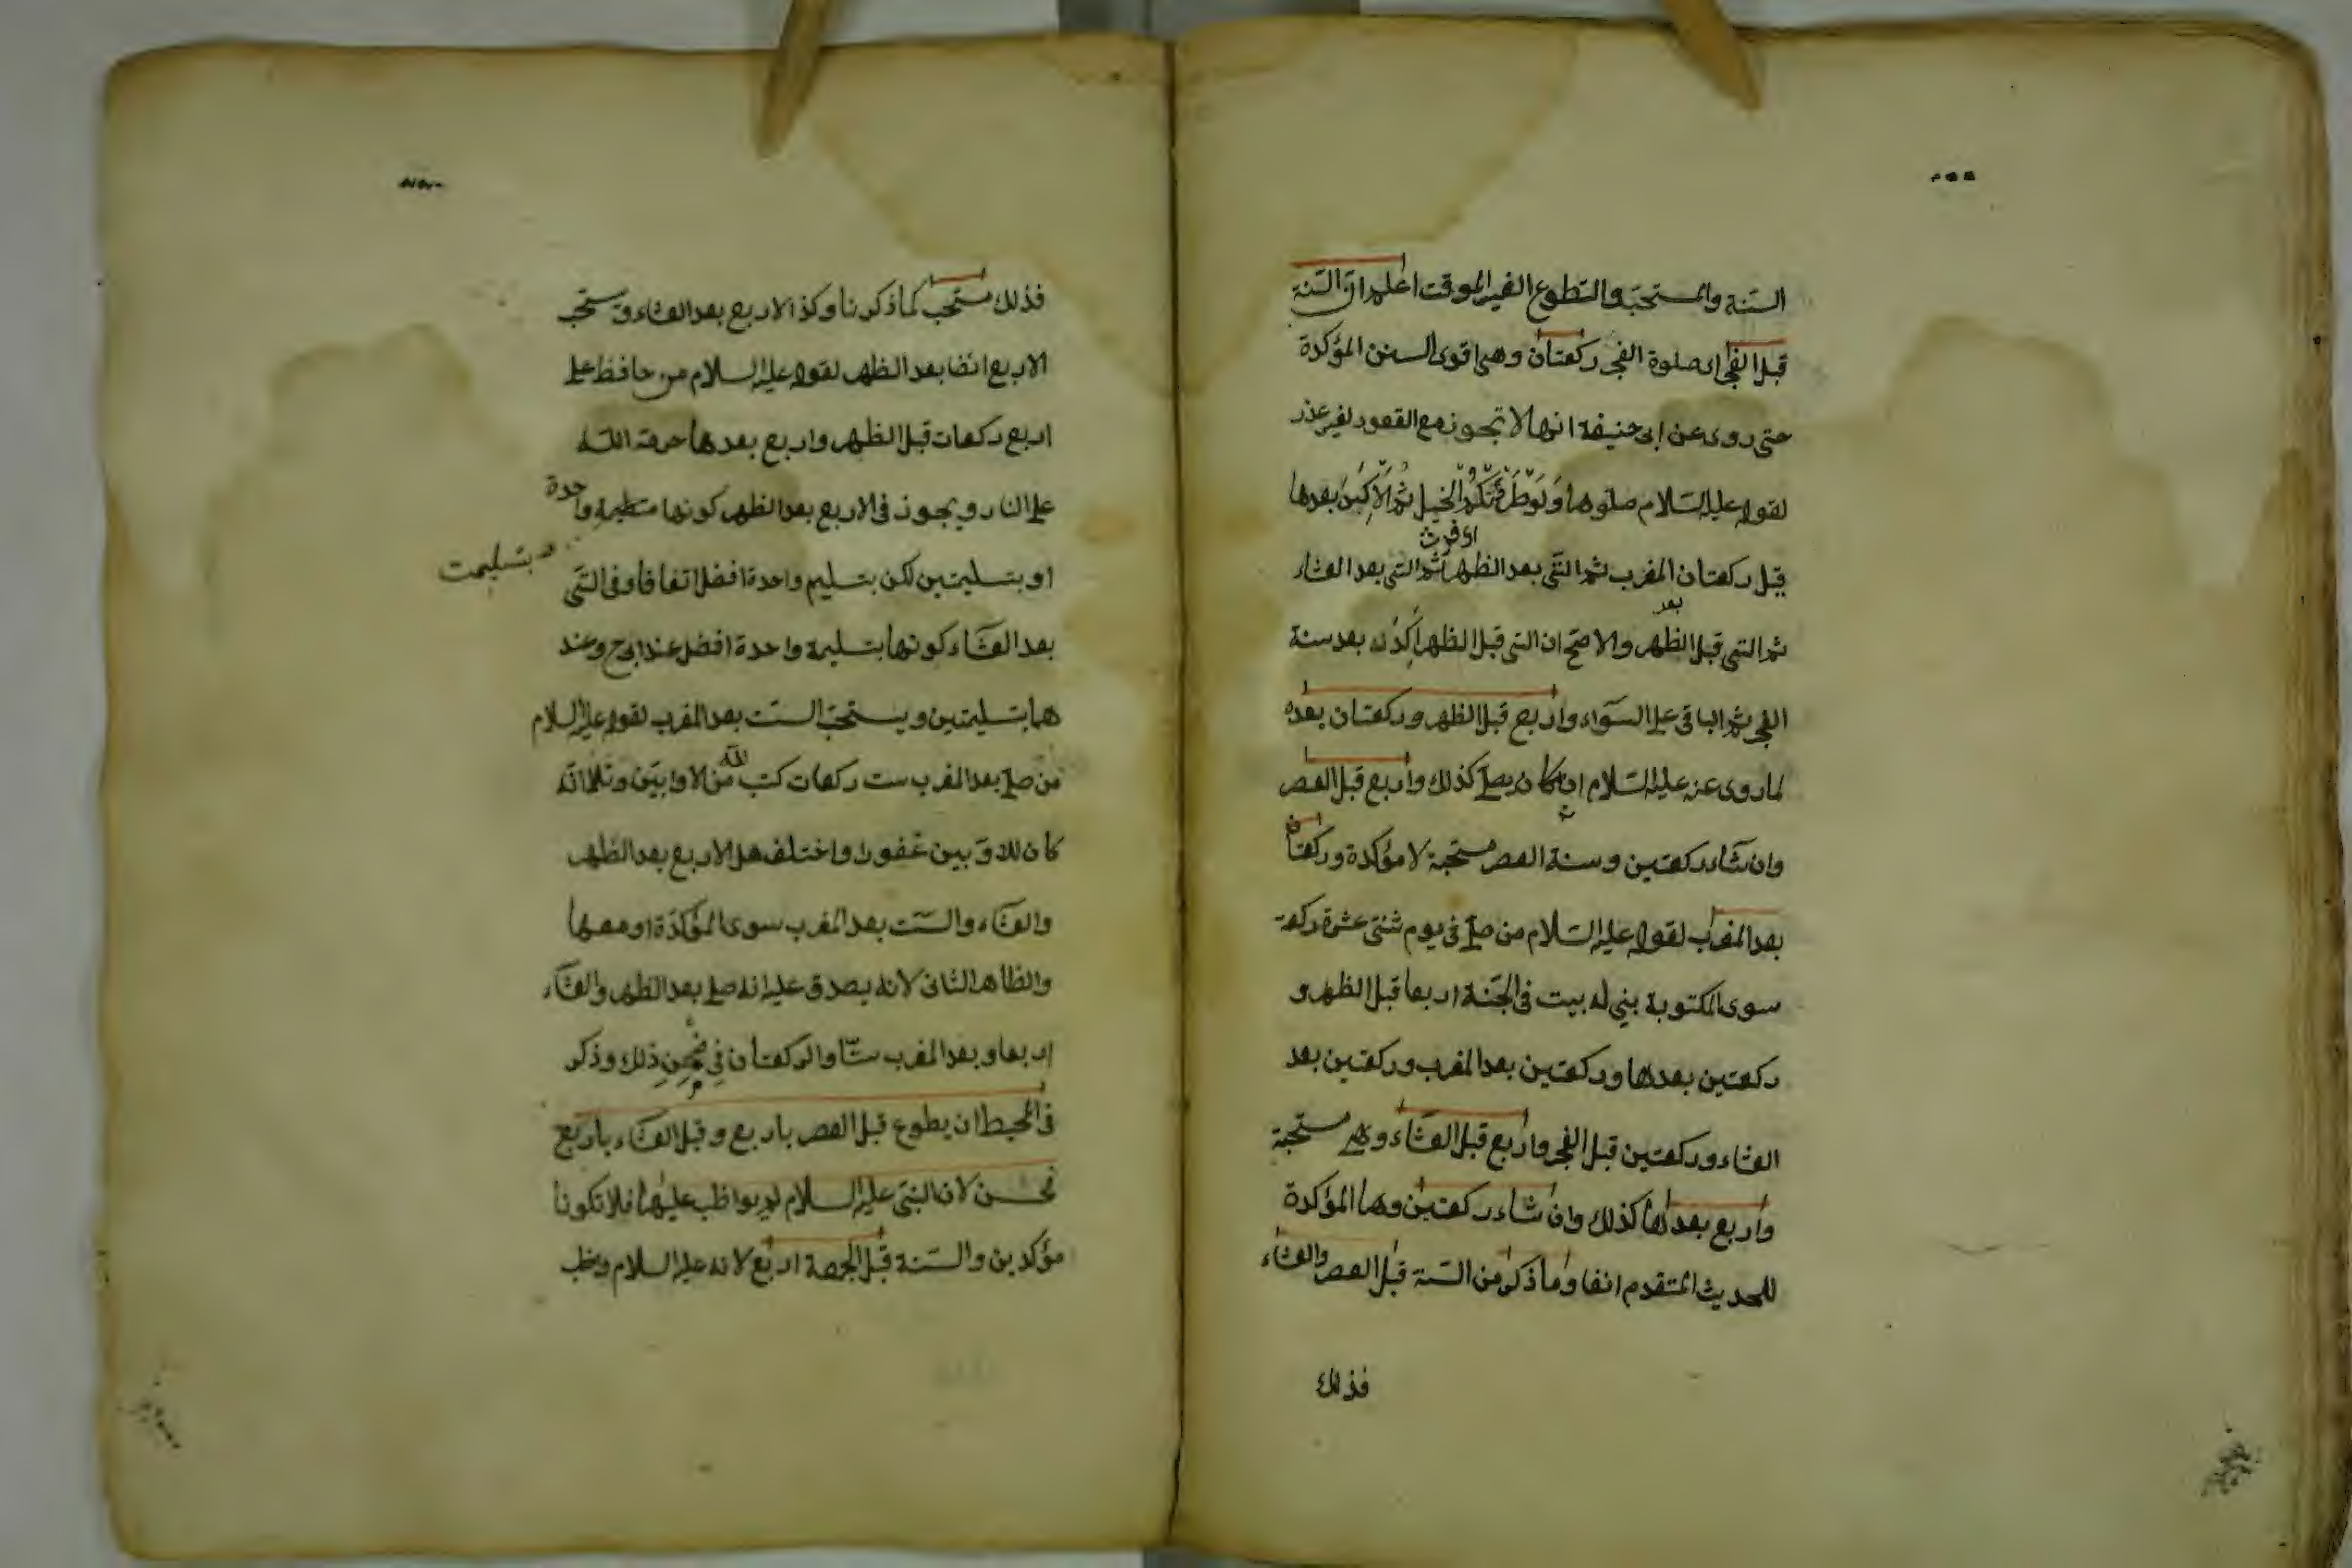 السنة والمستحبة والتطوع الغير الموقت اعلم ان السنة
قبل الفجر اى صلوة الفجر ركعتان وهى اقوى السنن المؤكدة
حتى روى عن ابى حنيفة انها لا تجوز مع القعود لغير عذر
لقوله عليه السلام صلوها ولو طردتكم الخيل ثم الآكد بعدها
قيل ركعتان المغرب ثم التى بعد الظهر ثم التى بعد العشاء
بعد
ثم التى قبل الظهر والاصح ان التى قبل الظهر آكد بعد سنة
الفجر ثم الباقى على السواء واربع قبل الظهر وركعتان بعده
لما روى عنه عليه السلام انه كان يصلى كذلك واربع قبل العصر
وان شاء ركعتين وسنة العصر مستحبة لا مؤكدة وركعتان
بعد المغرب لقوله عليه السلام من صلى فى يوم ثنتى عشرة ركعة
سوى المكتوبة بنى له بيت فى الجنة اربعا قبل الظهر و
ركعتين بعدها وركعتين بعد المغرب وركعتين بعد
العشاء وركعتين قبل الفجر واربع قبل العشاء وهى مستحبة
واربع بعدها كذلك وان شاء ركعتين وهما المؤكدة
للحديث المتقدم انفا وما ذكر من السنة قبل العصر والعشاء
فذلك
فذلك مستحب كما ذكرنا وكذا الاربع بعد العشاء وتستحب
الاربع ايضا بعد الظهر لقوله عليه السلام من حافظ على
اربع ركعات قبل الظهر واربع بعدها حرمه الله
على النار ويجوز فى الاربع بعد الظهر كونها بتسليمة واحدة
بتسليمة
او بتسليمتين لكن بتسليم واحدة افضل اتفاقا وفى التى
بعد العشاء كونها بتسليمة واحدة افضل عند ابى ح وعند
هما بتسليمتين ويستحب الست بعد المغرب لقوله عليه السلام
من صلى بعد المغرب ست ركعات كتب الله من الاوابين وتلا انه
كان للاوابين غفورا واختلف هل الاربع بعد الظهر
والعشاء والست بعد المغرب سوى المؤكدة او معها
والظاهر الثانى لانه يصدق عليه انه صلى بعد الظهر والعشاء
اربعا وبعد المغرب ستا والركعتان فى ضمن ذلك وذكر
فى المحيط ان يطوع قبل العصر باربع وقبل العشاء باربع
فحسن لان النبى عليه السلام لم يواظب عليهما فلا تكونا
مؤكدين والسنة قبل الجمعة اربع لانه عليه السلام وظب